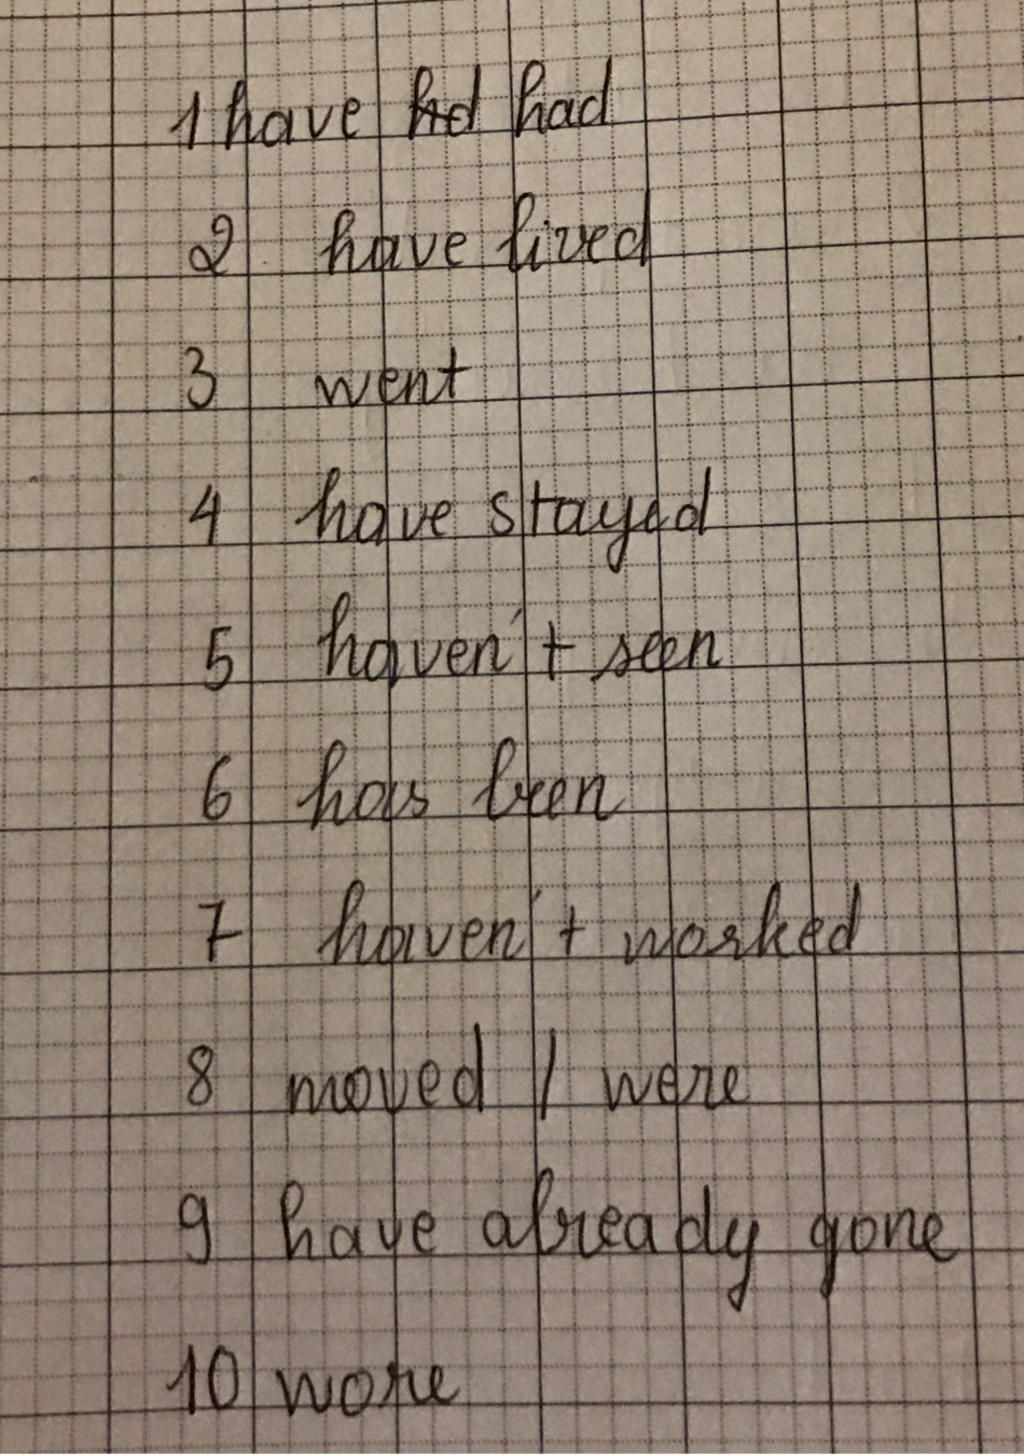 1 have had
2 have lived
3 went
4 have stayed
5 haven't seen
6 has been
7 haven't worked
8 moved / were
9 have already gone
10 wore